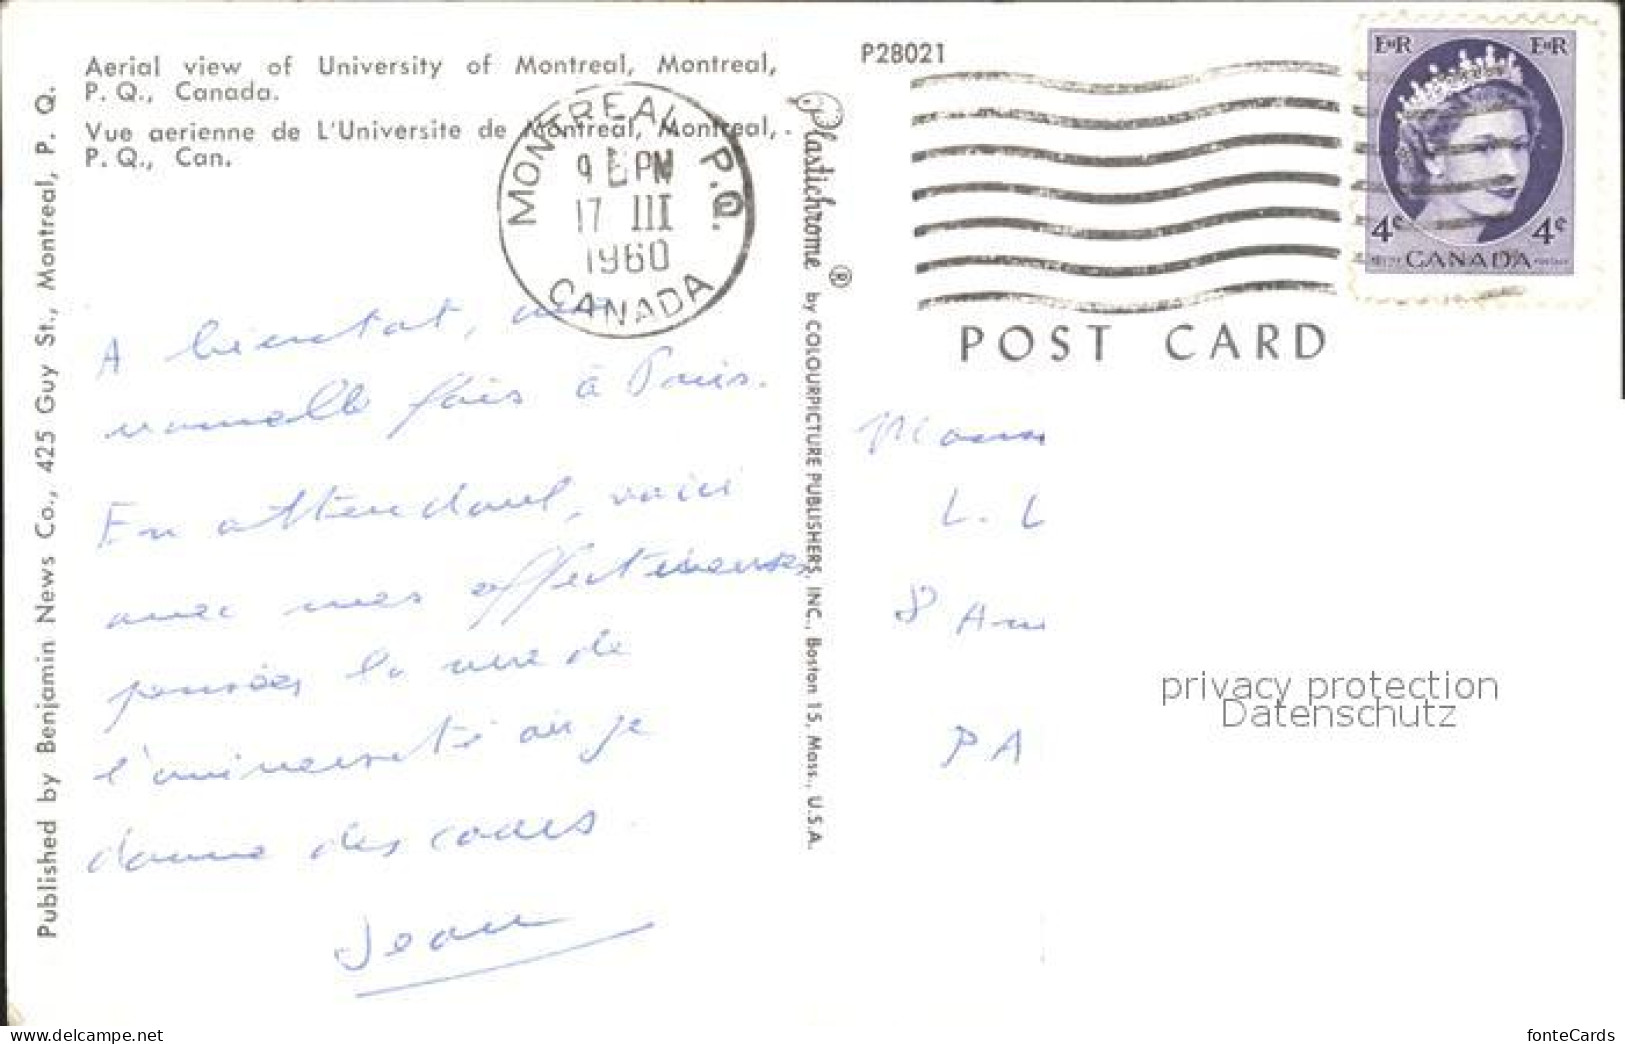 Aerial view of University of Montreal, Montreal,
P. Q., Canada.
Vue aerienne de L'Universite de Montreal, Montreal,
P. Q., Can.
Published by Benjamin News Co., 425 Guy St., Montreal, P. Q.
MONTREAL P.Q.
9 PM
17 III
1960
CANADA
A bientot, une
nouvelle fois à Paris.
En attendant, voici
avec mes affectueuses
pensées la vue de
l'université où je
donne des cours.
Jean
Plastichrome ® by COLOURPICTURE PUBLISHERS, INC., Boston 15, Mass., U.S.A.
P28021
EIIR EIIR
4¢ 4¢
CANADA
POST CARD
L. L
8 Av
PA
privacy protection
Datenschutz
www.delcampe.net
fonteCards